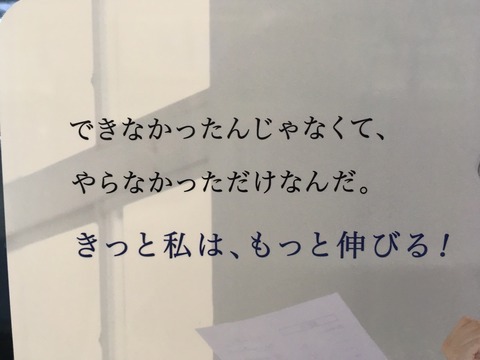 できなかったんじゃなくて、
やらなかっただけなんだ。
きっと私は、もっと伸びる！